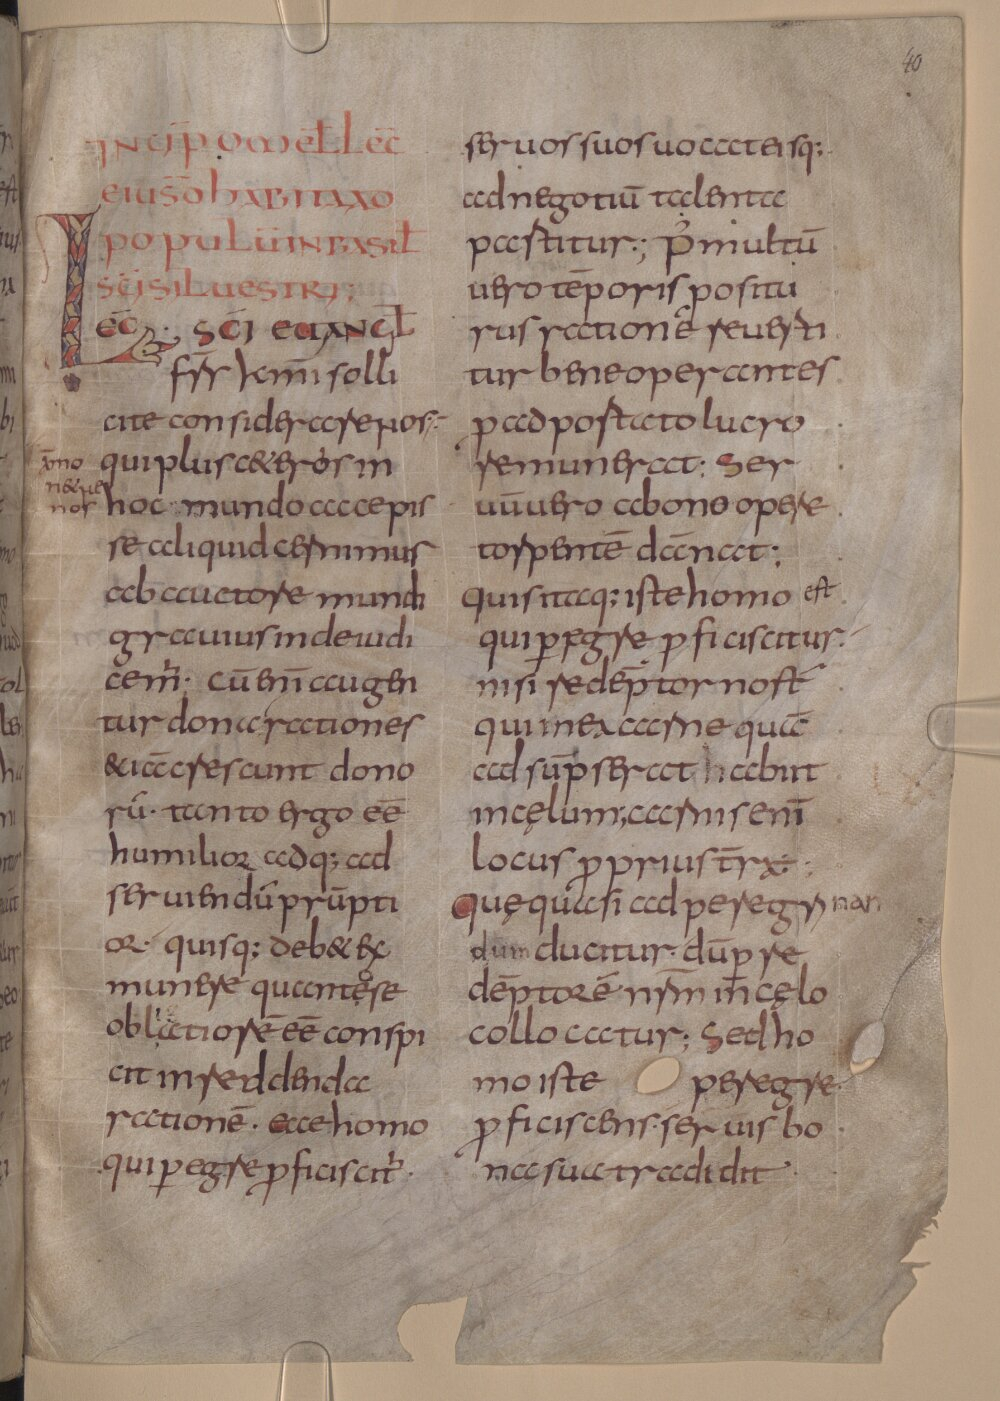 40
INCIP OMEL LEC
EIUSD HABITA XO
POPULŪ IN BASIL
SCI SILUESTRI;
LEC SCI EUANGL
frs kmi solli
cite considerare nos.
qui plus ceteros in
xmo
neque
nos
hoc mundo accepis
se aliquid cernimus
ab auctore mundi
grauius inde iudi
cemr. cū eni augen
tur dona rationes
& iā crescunt dono
rū. tanto ergo eē
humilior adq; ad
seruiendū prūpti
or. quisq; deb& ex
munere quanto se
obligatiorē eē conspi
cit in reddenda
rationē. ecce homo
qui peregre pficiscitr.
seruos suos uocat eisq;
ad negotiū talenta
partitur; P multū
uero tēporis positu
rus rationē reuerti
tur bene operantes
p adportato lucro
remunerat; Ser
uū uero a bono ope
re torpentē dāmnat;
Quis itaq; iste homo est
qui peregre pficiscitur.
nisi redēptor nost
qui in ea carne quā
adsūpserat habiit
in cęlum; carnis eni
locus pprius tr̄ ē;
Quę quasi ad peregrinan
dum ducitur. dū p re
dēptorē nrm in cęlo
collocatur; Sed ho
mo iste peregre
pficiscens. seruis bo
na sua tradidit